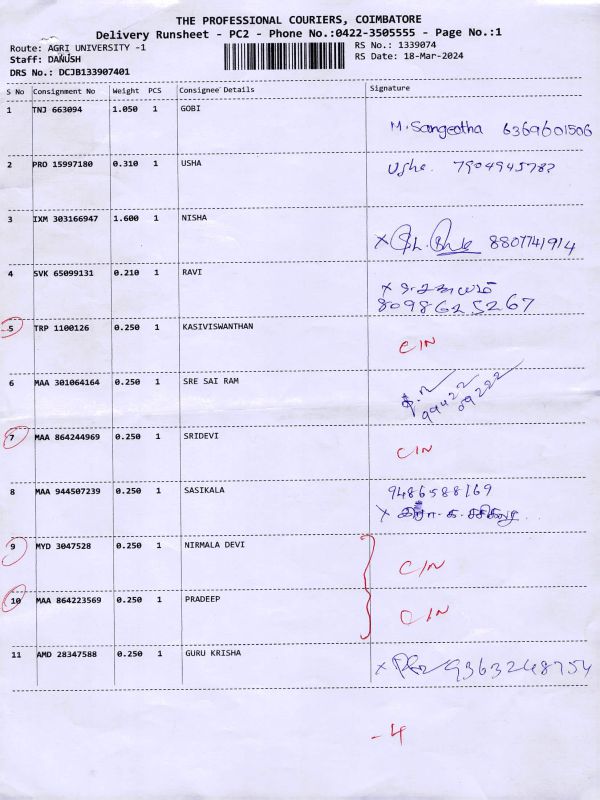 THE PROFESSIONAL COURIERS, COIMBATORE
Delivery Runsheet - PC2 - Phone No.:0422-3505555 - Page No.:1
Route: AGRI UNIVERSITY -1 RS No.: 1339074
Staff: DANUSH RS Date: 18-Mar-2024
DRS No.: DCJB133907401
S No Consignment No Weight PCS Consignee Details Signature
1 TNJ 663094 1.050 1 GOBI
M. Sangeetha 6369601506
2 PRO 15997180 0.310 1 USHA
Usha. 7904945782
3 IXM 303166947 1.600 1 NISHA
X 8807741914
4 SVK 65099131 0.210 1 RAVI
X
8098625267
5 TRP 1100126 0.250 1 KASIVISWANTHAN
C/N
6 MAA 301064164 0.250 1 SRE SAI RAM
99422
09222
7 MAA 864244969 0.250 1 SRIDEVI
C/N
8 MAA 944507239 0.250 1 SASIKALA
9486588169
X
9 MYD 3047528 0.250 1 NIRMALA DEVI
C/N
10 MAA 864223569 0.250 1 PRADEEP
C/N
11 AMD 28347588 0.250 1 GURU KRISHA
X 9363248754
-4